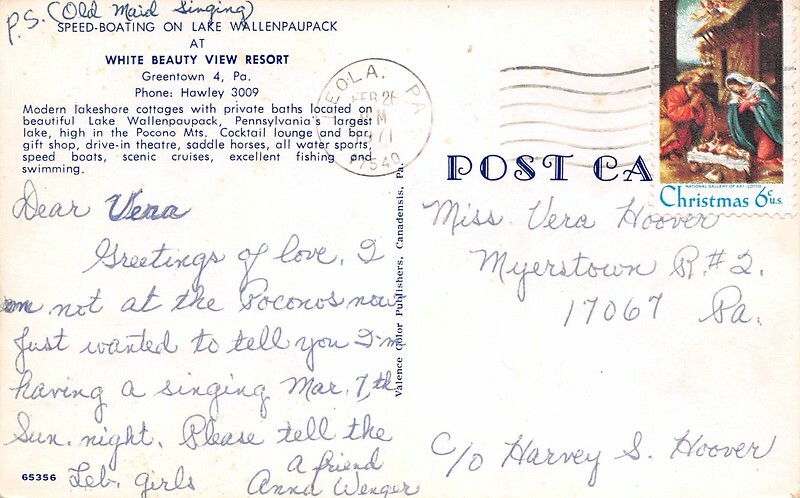 P.S. (Old Maid Singing)
SPEED-BOATING ON LAKE WALLENPAUPACK
AT
WHITE BEAUTY VIEW RESORT
Greentown 4, Pa.
Phone: Hawley 3009
Modern lakeshore cottages with private baths located on
beautiful Lake Wallenpaupack, Pennsylvania's largest
lake, high in the Pocono Mts. Cocktail lounge and bar,
gift shop, drive-in theatre, saddle horses, all water sports,
speed boats, scenic cruises, excellent fishing and
swimming.
Dear Vera
Greetings of love. I
am not at the Poconos now
Just wanted to tell you I'm
having a singing Mar. 7th
Sun. night. Please tell the
Leb. girls
a friend
Anna Wenger
65356
Valence Color Publishers, Canadensis, Pa.
LEOLA, PA
FEB 26
PM
1971
17540
POST CA
NATIONAL GALLERY OF ART · LOTTO
Christmas 6c U.S.
Miss Vera Hoover
Myerstown R.#2.
17067 Pa.
C/O Harvey S. Hoover